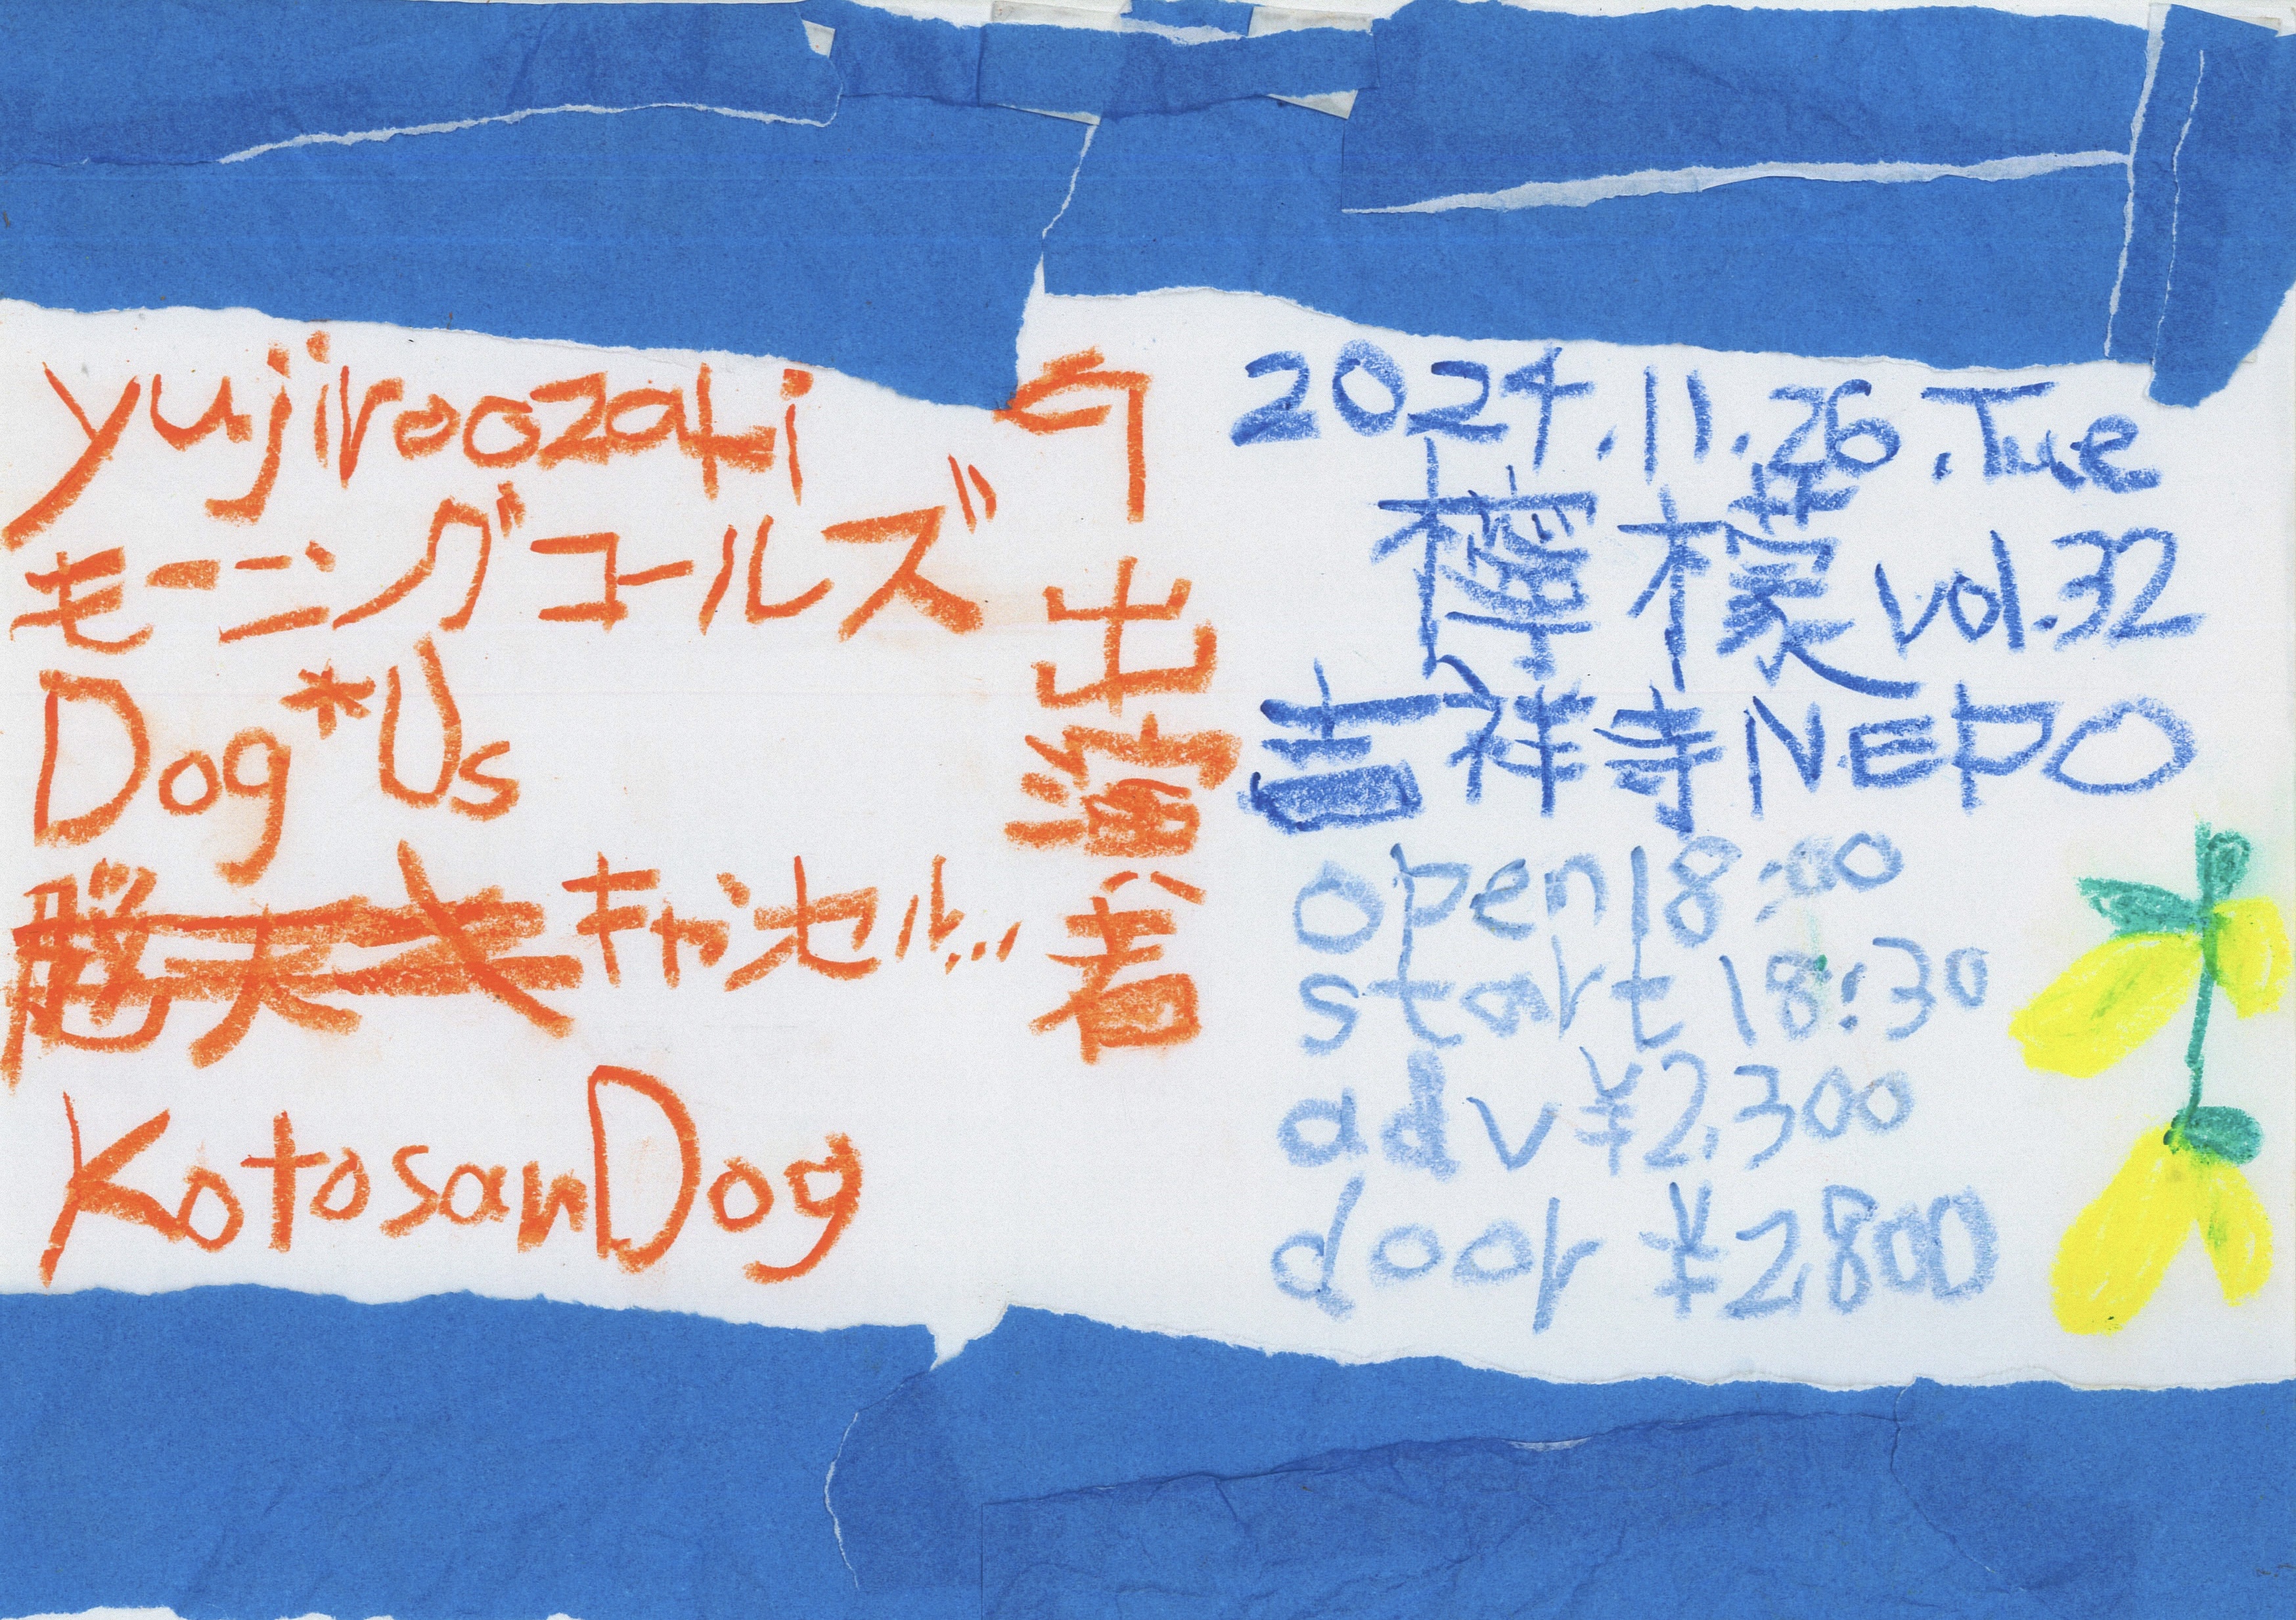 2024.11.26.Tue
檸檬 vol.32
吉祥寺NEPO
open 18:00
start 18:30
adv ¥2,300
door ¥2,800
出演者
yujiroozaki
モーニングコールズ
Dog*Us
キャンセル...
KotosanDog